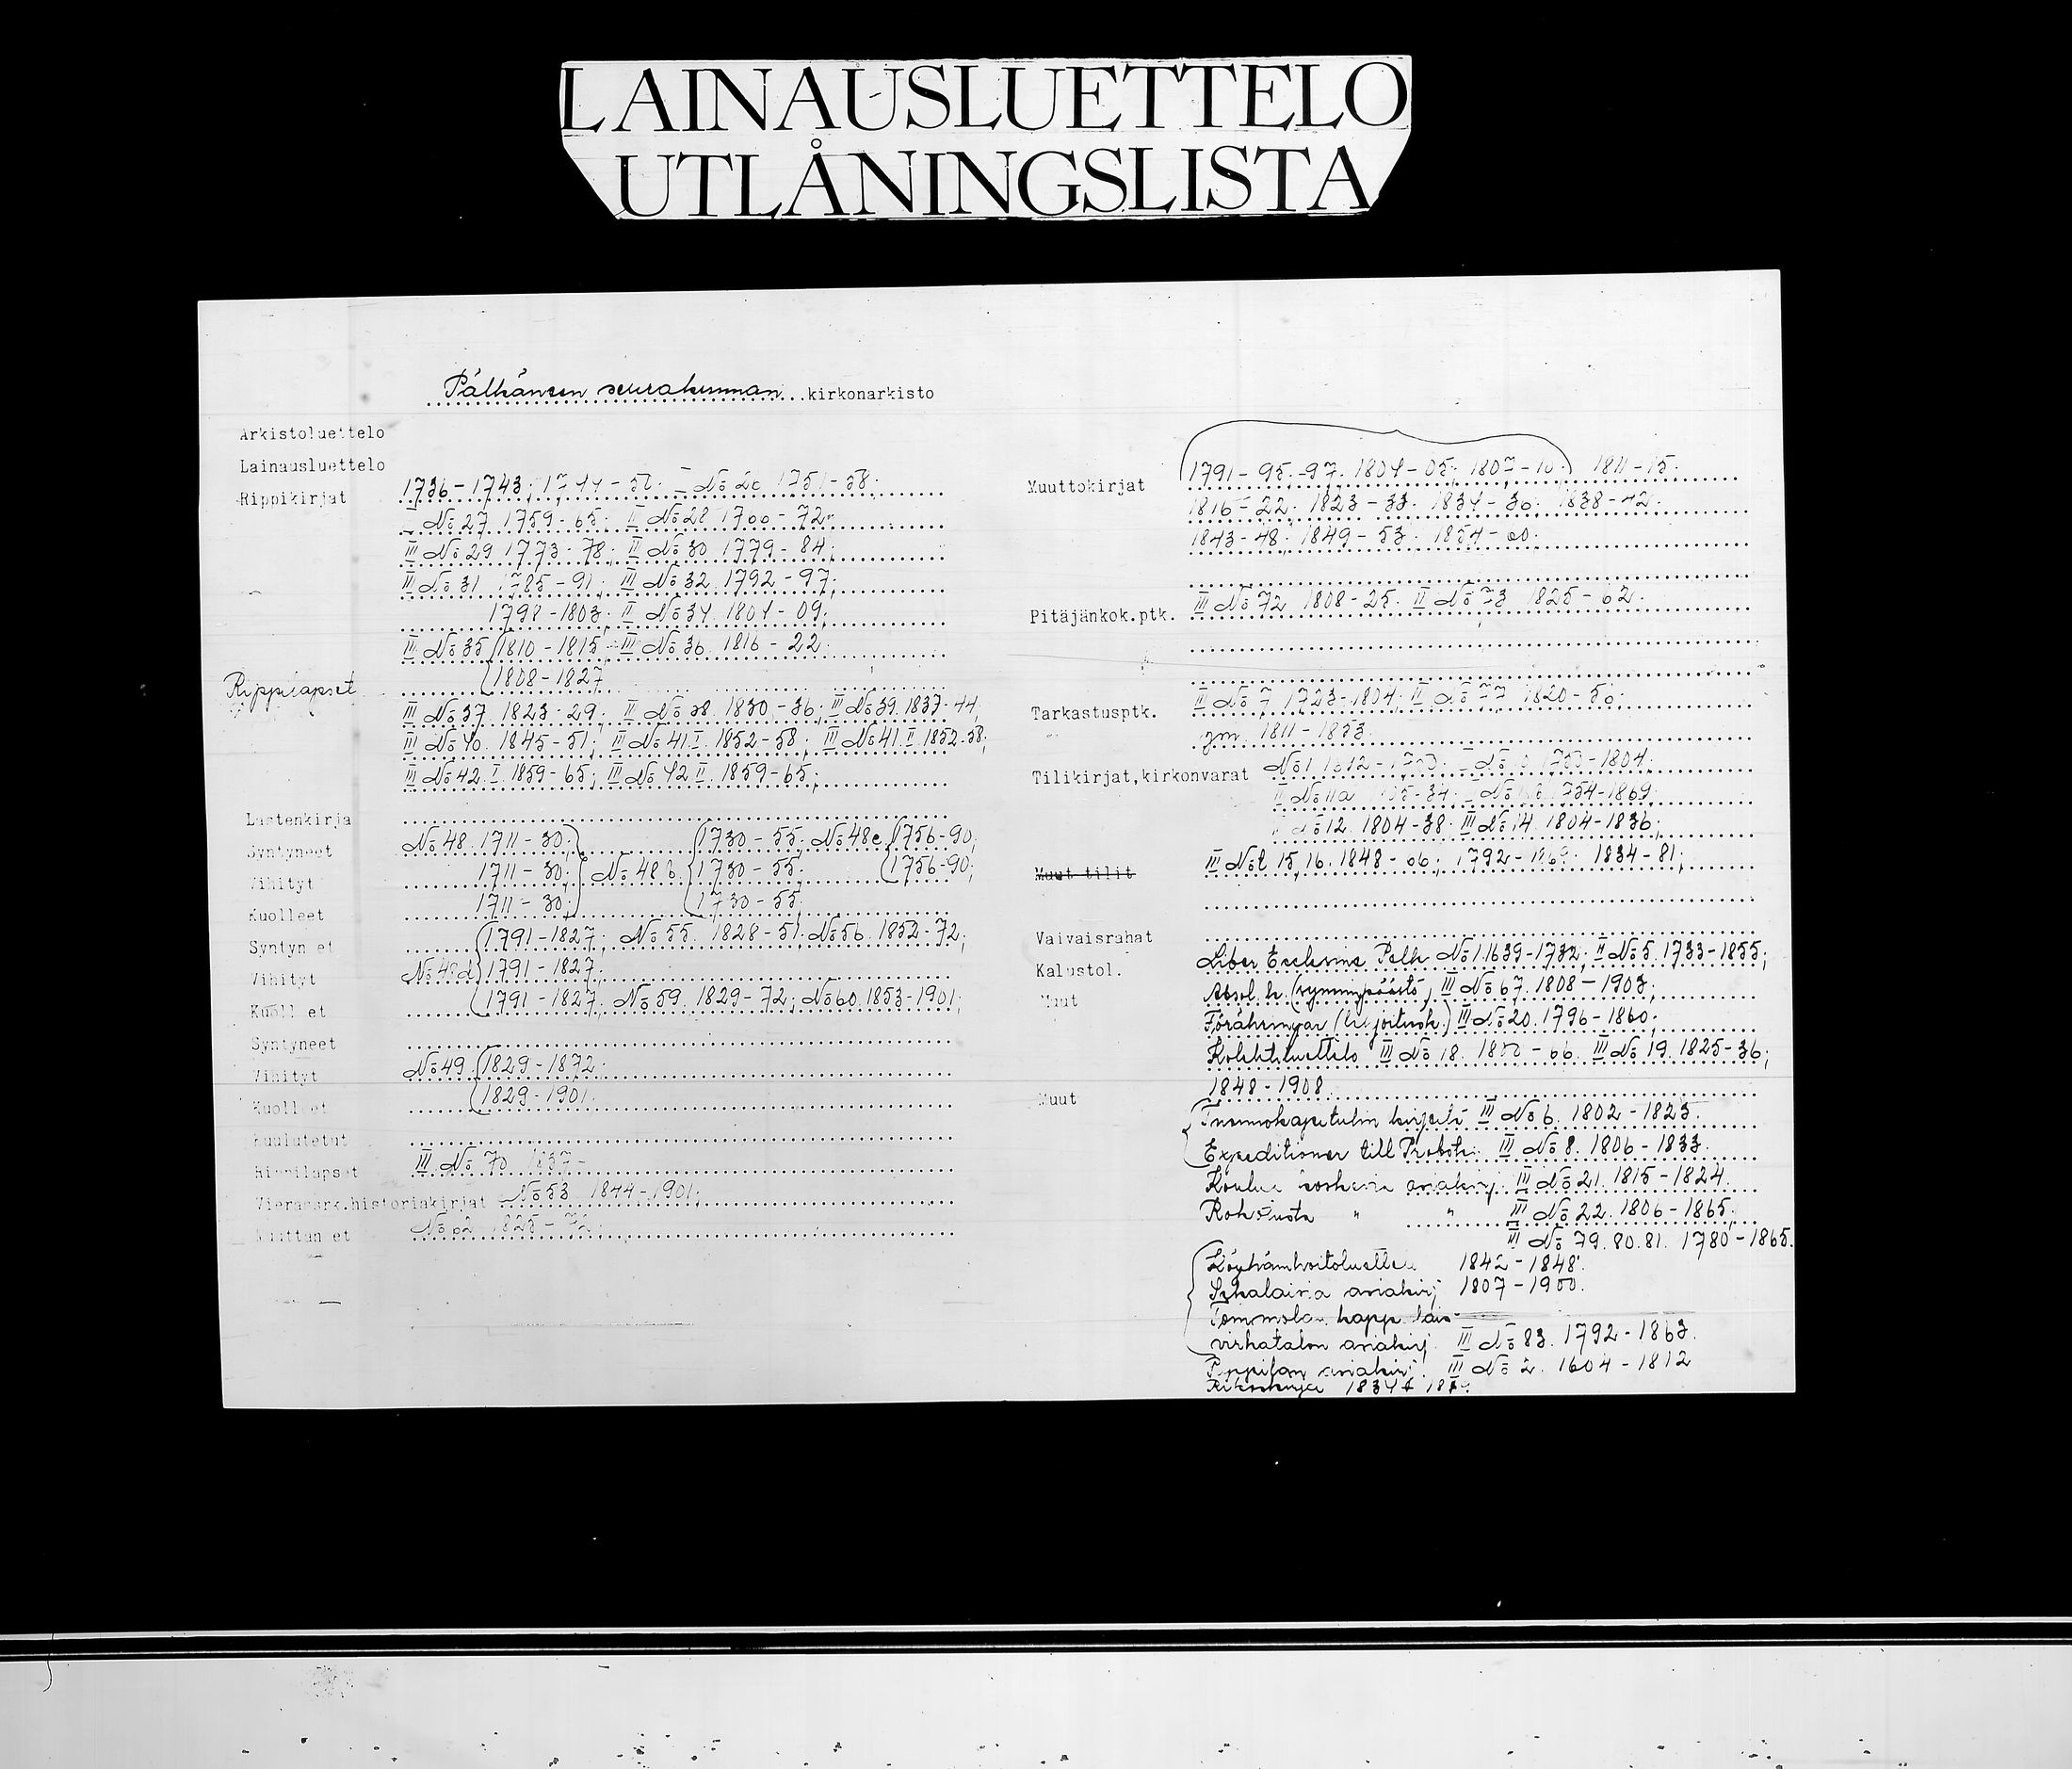 LAINAUSLUETTELO
UTLÅNINGSLISTA
Pälkäneen seurakunnan kirkonarkisto
Arkistoluettelo
Lainausluettelo
Rippikirjat 1736-1743;
No 27 1759-65; II No 28 -72
III No 29 1773-78; II No 30 1779-84;
II No 31 1785-91; III No 32 1792-97;
1798-1803; II No 34. 1804-09;
II No 35 1810-1815; III No 36. 1816-22;
Rippilapset 1808-1827
III No 37. 1823-29; II No 38. 1830-36; III No 39. 1837-44;
III No 40. 1845-51; III No 41.I. 1852-58; III No 41.II. 1852-58;
III No 42.I. 1859-65; III No 42 II. 1859-65;
Lastenkirja
Syntyneet No 48. 1711-30; 1730-55; No 48c 1756-90;
Vihityt 1711-30; No 48 b. 1730-55; 1756-90;
Kuolleet 1711-30; 1730-55;
Syntyneet 1791-1827; No 55. 1828-51. No 56. 1852-72;
Vihityt No 48d 1791-1827;
Kuolleet 1791-1827. No 59. 1829-72; No 60. 1853-1901;
Syntyneet
Vihityt No 49. 1829-1872.
Kuolleet 1829-1901.
Kuulutetut
Rippilapset III No 70 1837-
Vierasark.historiakirjat No 53 1844-1901;
Muuttaneet No 62 1825-72;
Muuttokirjat 1791-95.-97. 1804-05; 1807-10; 1811-15;
1816-22. 1823-33. 1838-42.
1843-48. 1849-53. 1854-60.
Pitäjänkok.ptk. III No 72 1808-25. II No 73 1825-62.
Tarkastusptk. II No 7 1723-1804; II No 77 1820-56;
1811-1853.
Tilikirjat,kirkonvarat No 1 -1804;
II No 11a -34; -1869;
No 12. 1804-38. III No 14. 1804-1836;
Muut tilit III No 15,16. 1848-66; 1834-81;
Vaivaisrahat
Kalustol. Liber Ecclesiae Pelk No 1. 1639-1732; II No 5. 1733-1855;
Muut Absol.k. (synninpäästö) III No 67. 1808-1903;
Föräringar III No 20. 1796-1860;
Kolehtiluettelo III No 18. -66. III No 19. 1825-36;
1848-1908
Muut Tuomiokapitulin kirjeitä III No 6. 1802-1823.
Expeditioner till Probsti. III No 8. 1806-1833.
Koulua koskevia asiakirj. III No 21. 1815-1824.
Rokotusta " " III No 22. 1806-1865;
III No 79. 80. 81. 1780-1865.
Köyhäinhoitoluettelo 1842-1848.
Sekalaisia asiakirj 1807-1900.
Tommolan kapp. lais
virkatalon asiakirj. III No 83. 1792-1863.
Pappilan asiakirj. III No 2. 1604-1812